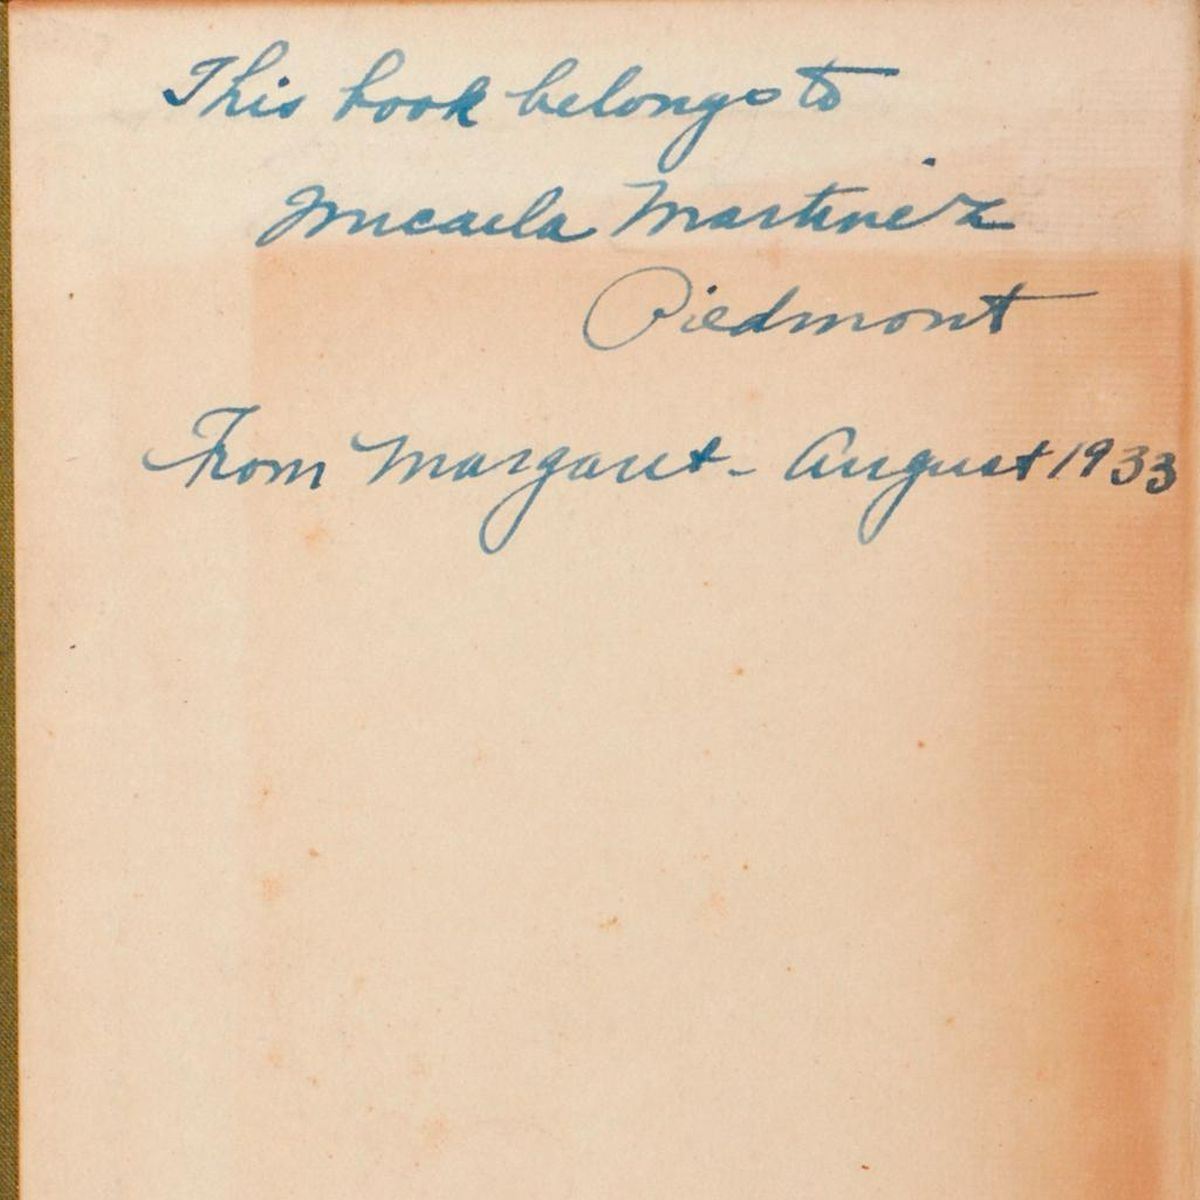 This book belongs to
Micaela Martinez
Piedmont
From Margaret - August 1933